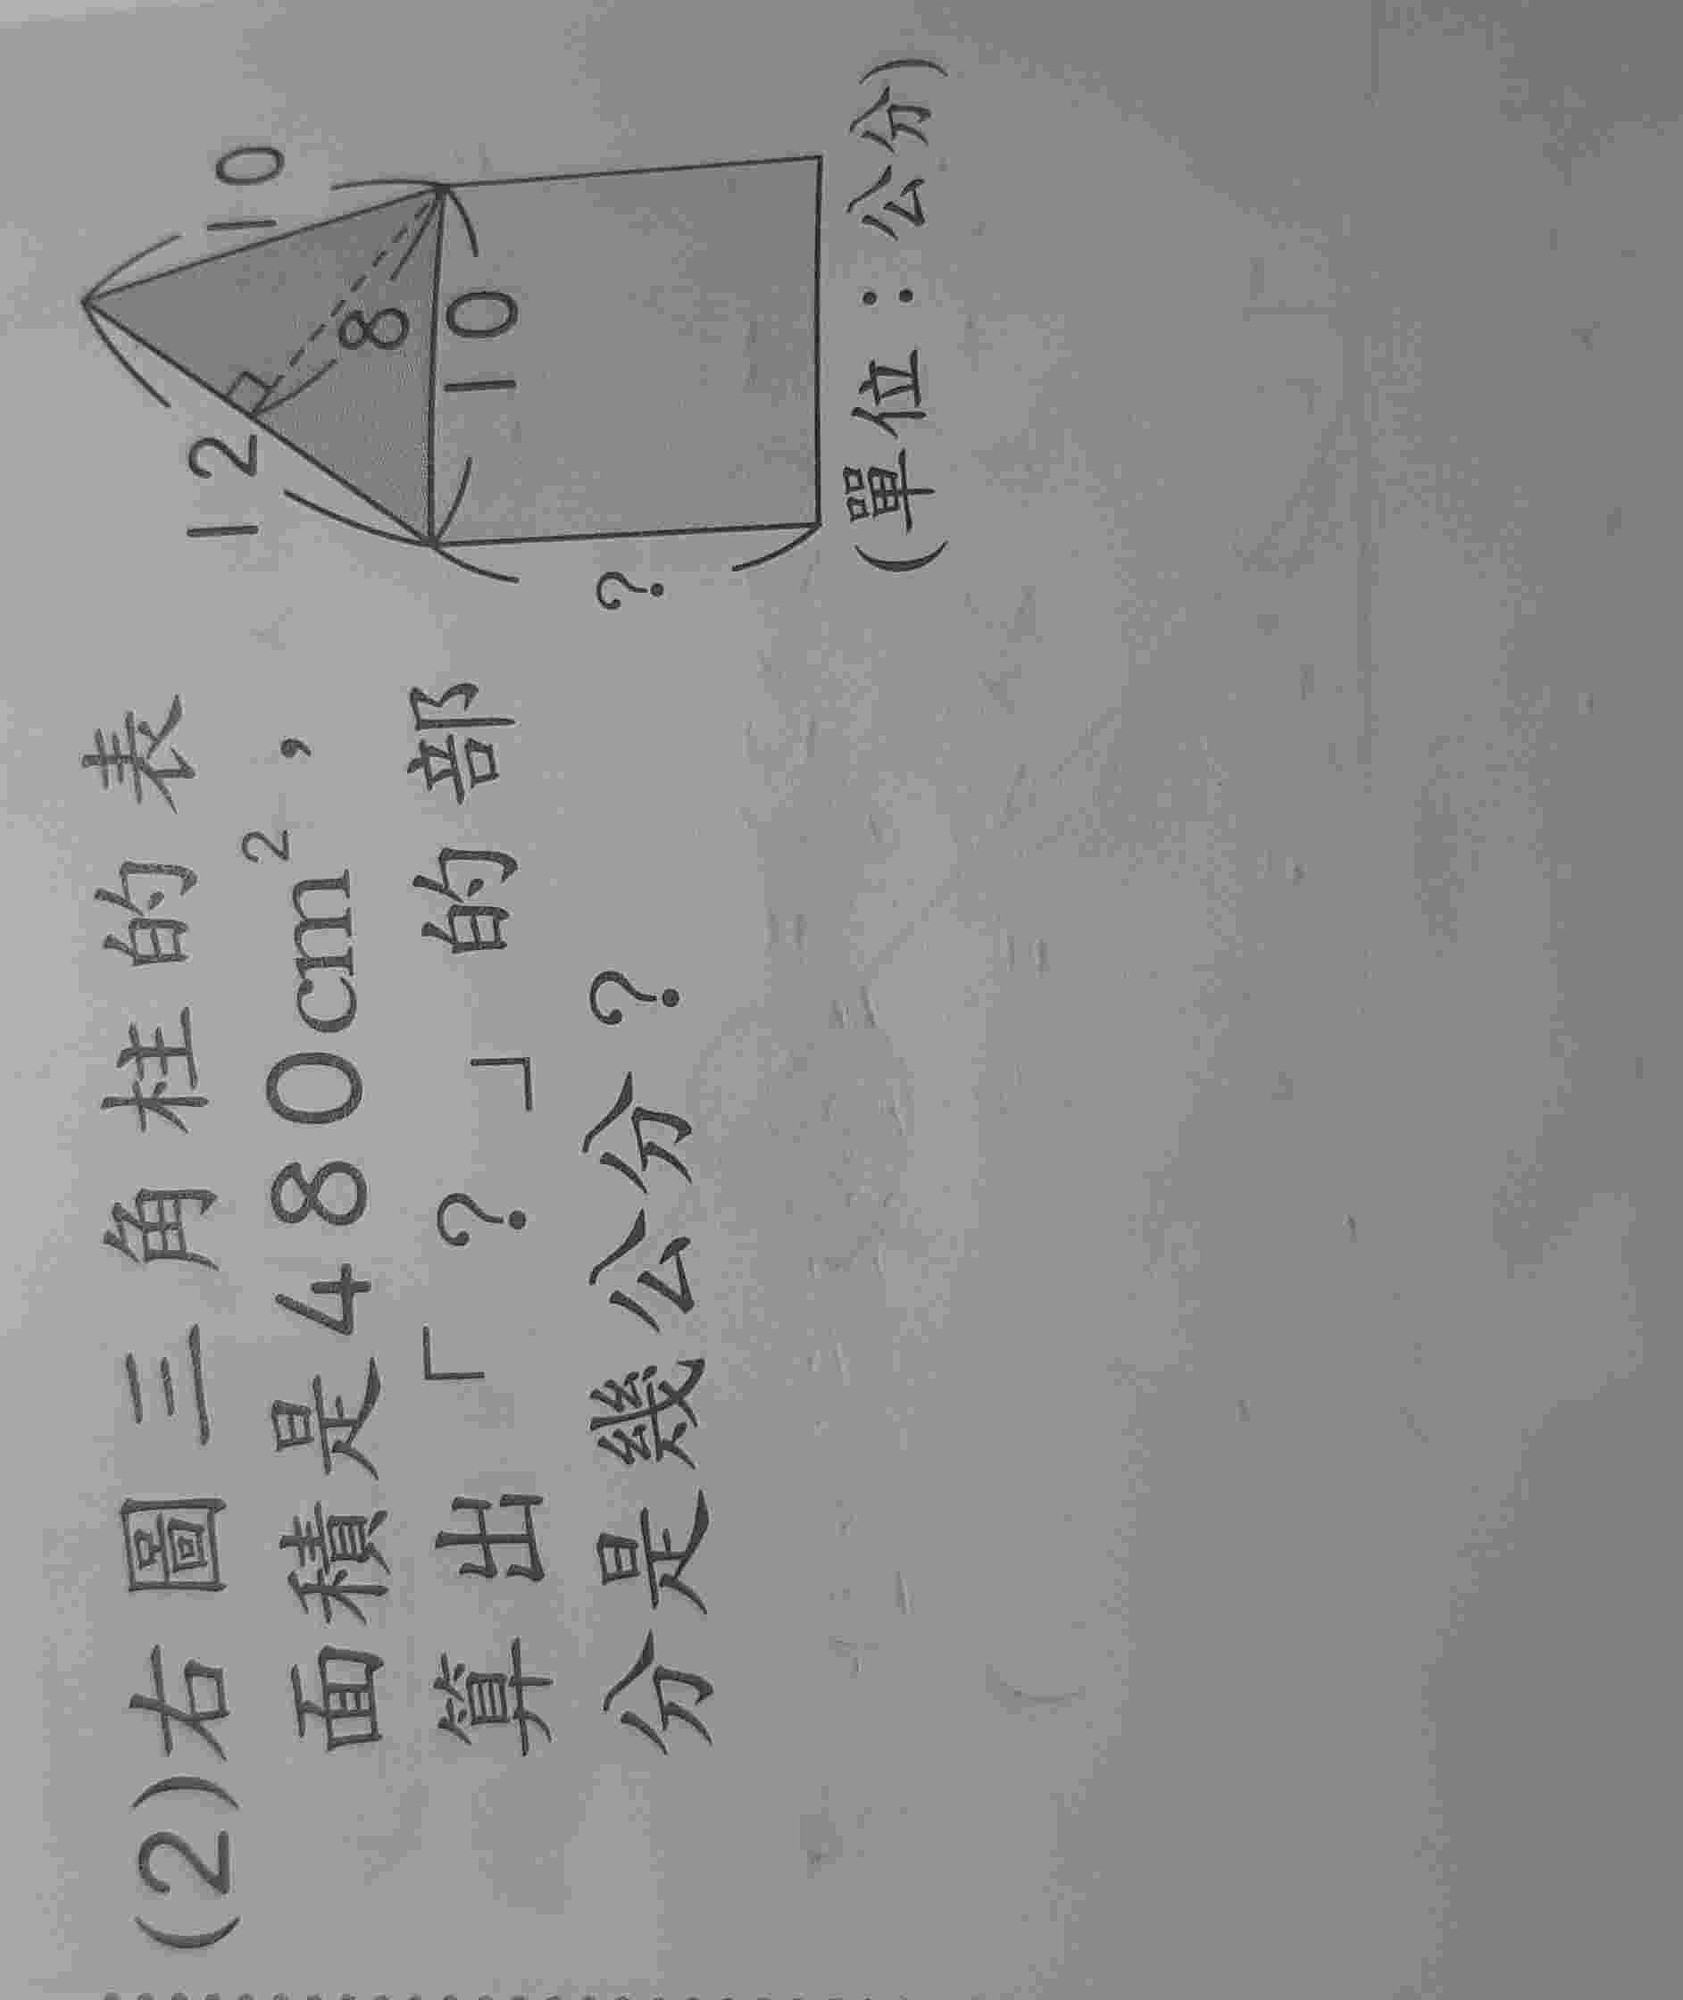 (2)右圖三角柱的表
面積是480cm²，
算出「？」的部
分是幾公分？
12
10
8
10
？
(單位：公分)